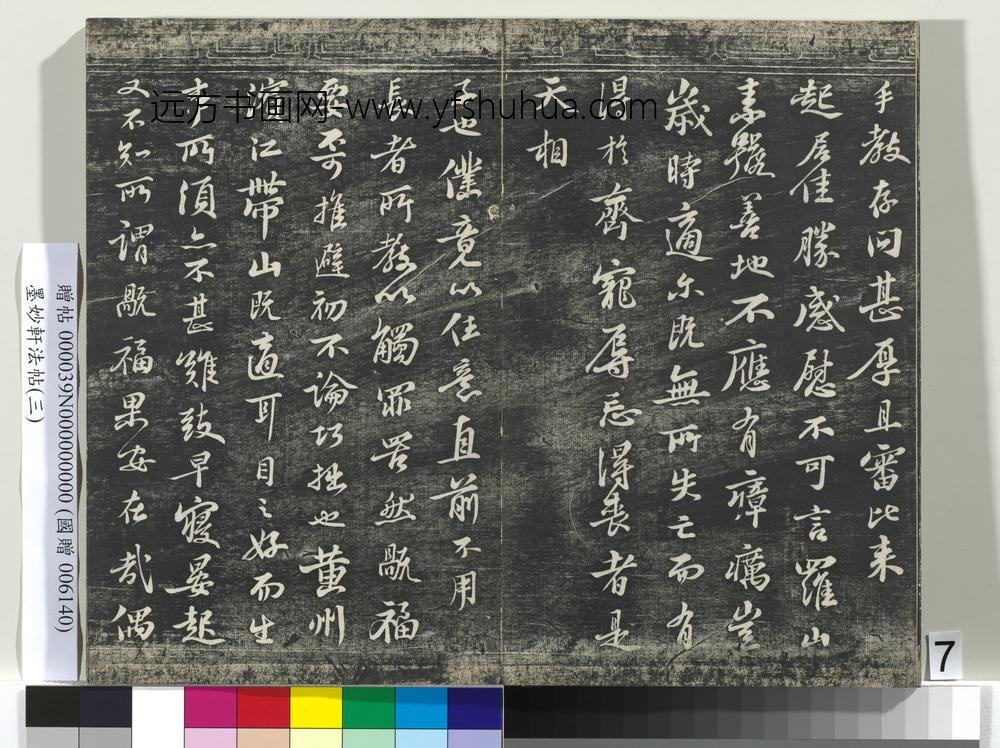 手教存问甚厚且審比来
起居佳勝感慰不可言羅山
素號善地不應有瘴癘豈
歲時適尔既無所失亡而有
得於齊寵辱忘得喪者是
天相
子也僕竟以任意直前不用
長者所教以觸罪罟然禍福
要不可推避初不論巧拙也黄州
濱江帶山既適耳目之好而生
事所須亦不甚難致早寢晏起
又不知所謂禍福果安在哉偶
远方书画网-www.yfshuhua.com
贈帖 000039N000000000 (國贈 006140)
墨妙軒法帖(三)
7